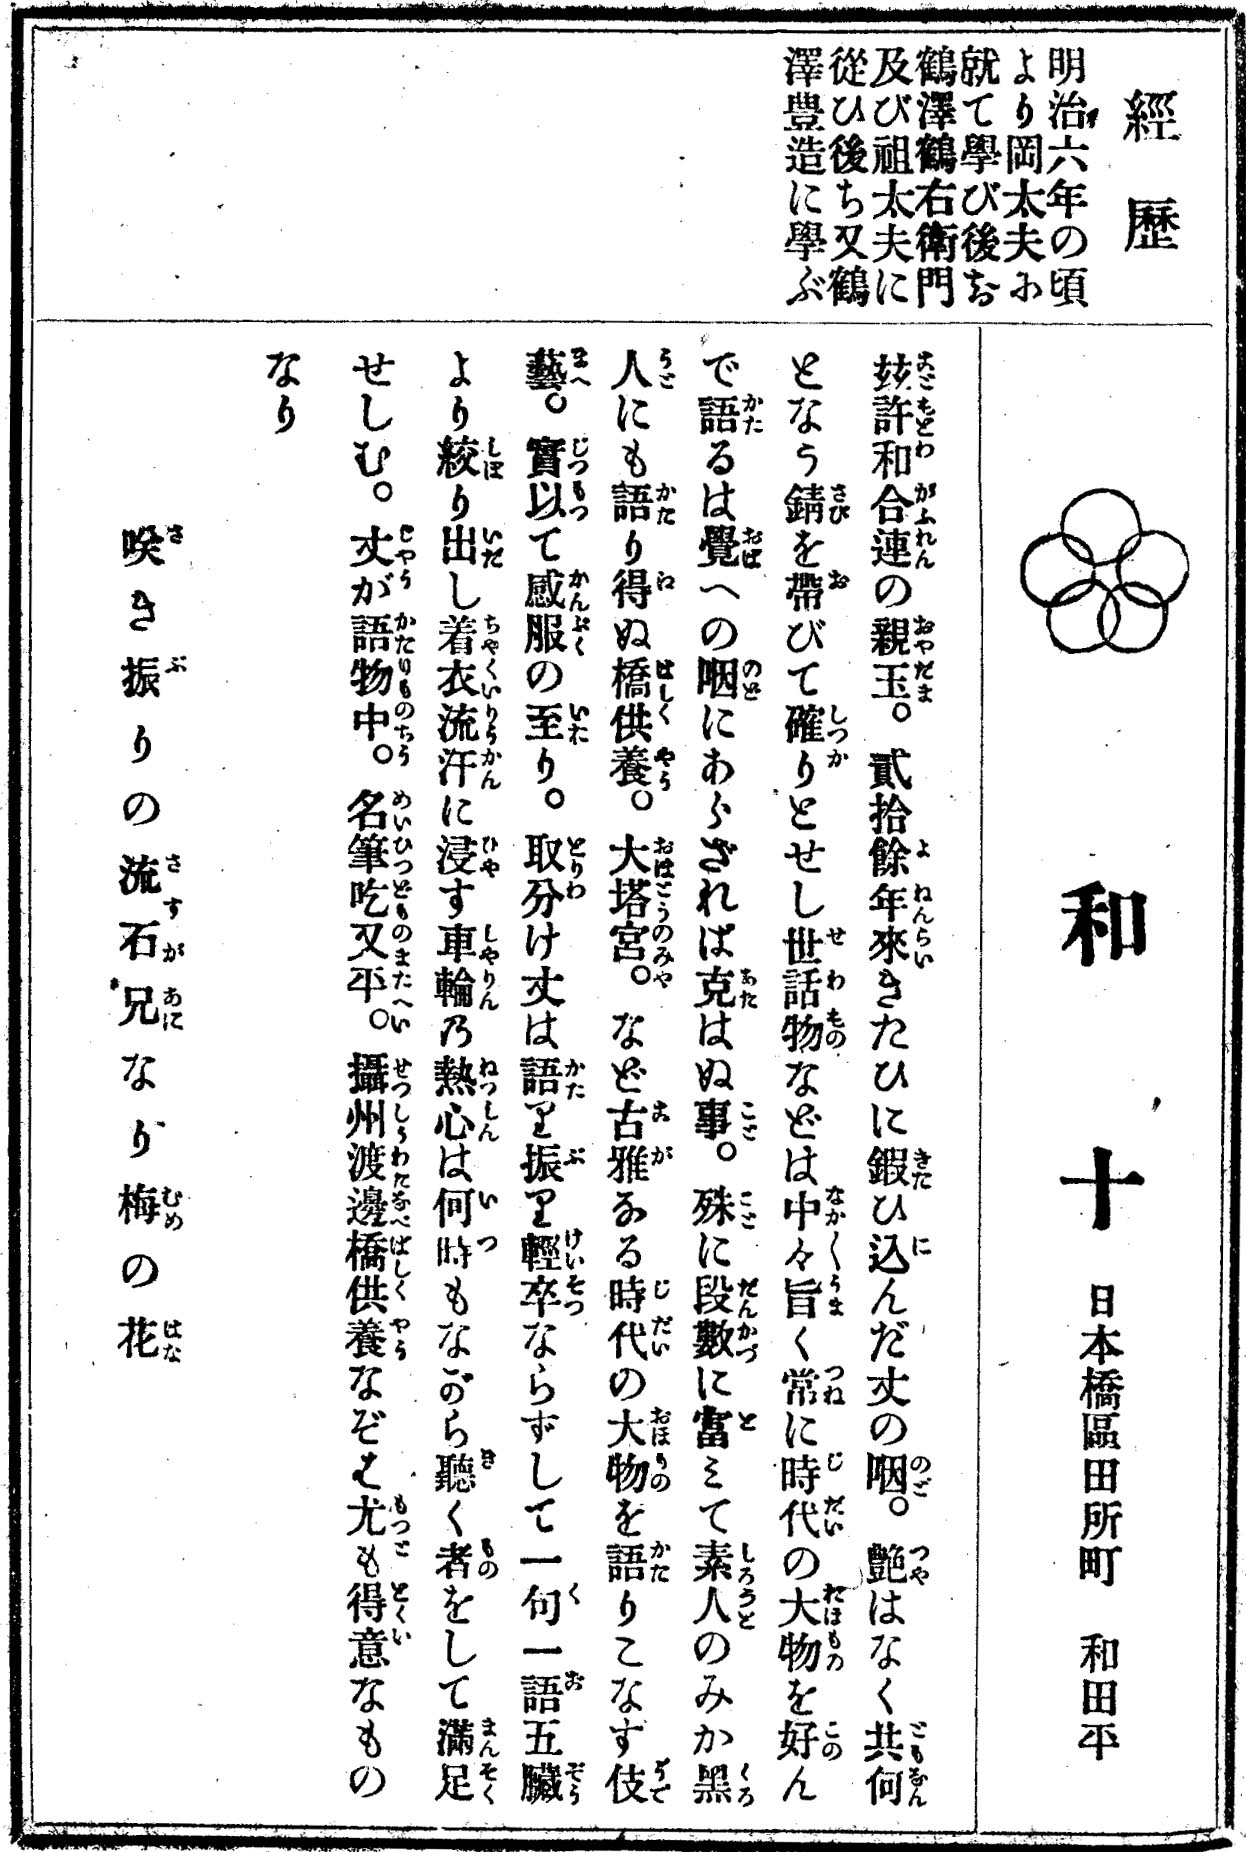 經歷
明治六年の頃
より岡太夫に
就て學び後ち
鶴澤鶴右衛門
及び祖太夫に
從ひ後ち又鶴
澤豊造に學ぶ
和十
日本橋區田所町 和田平
玆許和合連の親玉。貳拾餘年來きたひに鍜ひ込んだ丈の咽。艶はなく共何
となう錆を帶びて確りとせし世話物などは中々旨く常に時代の大物を好ん
で語るは覺への咽にあらざれば克はぬ事。殊に段數に富みて素人のみか黑
人にも語り得ぬ橋供養。大塔宮。など古雅なる時代の大物を語りこなす伎
藝。實以て感服の至り。取分け丈は語り振り輕卒ならずして一句一語五臟
より絞り出し着衣流汗に浸す車輪乃熱心は何時もながら聽く者をして滿足
せしむ。丈が語物中。名筆吃又平。攝州渡邊橋供養なぞは尤も得意なもの
なり
咲き振りの流石兄なり梅の花